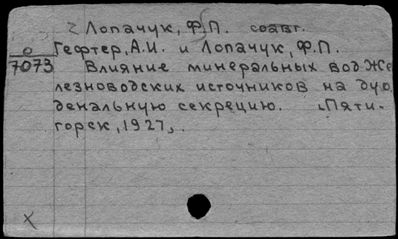 2 Лопачук, Ф.П. соавт.
0
7073
Гефтер, А.И. и Лопачук, Ф.П.
Влияние минеральных вод Же
лезноводских источников на дуо
денальную секрецию. Пяти-
горск, 1927.
X